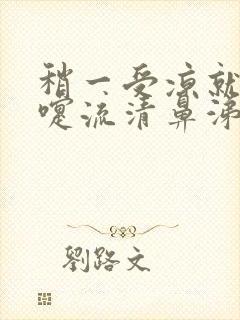 稍一受凉就
嚏流清鼻涕
劉路文